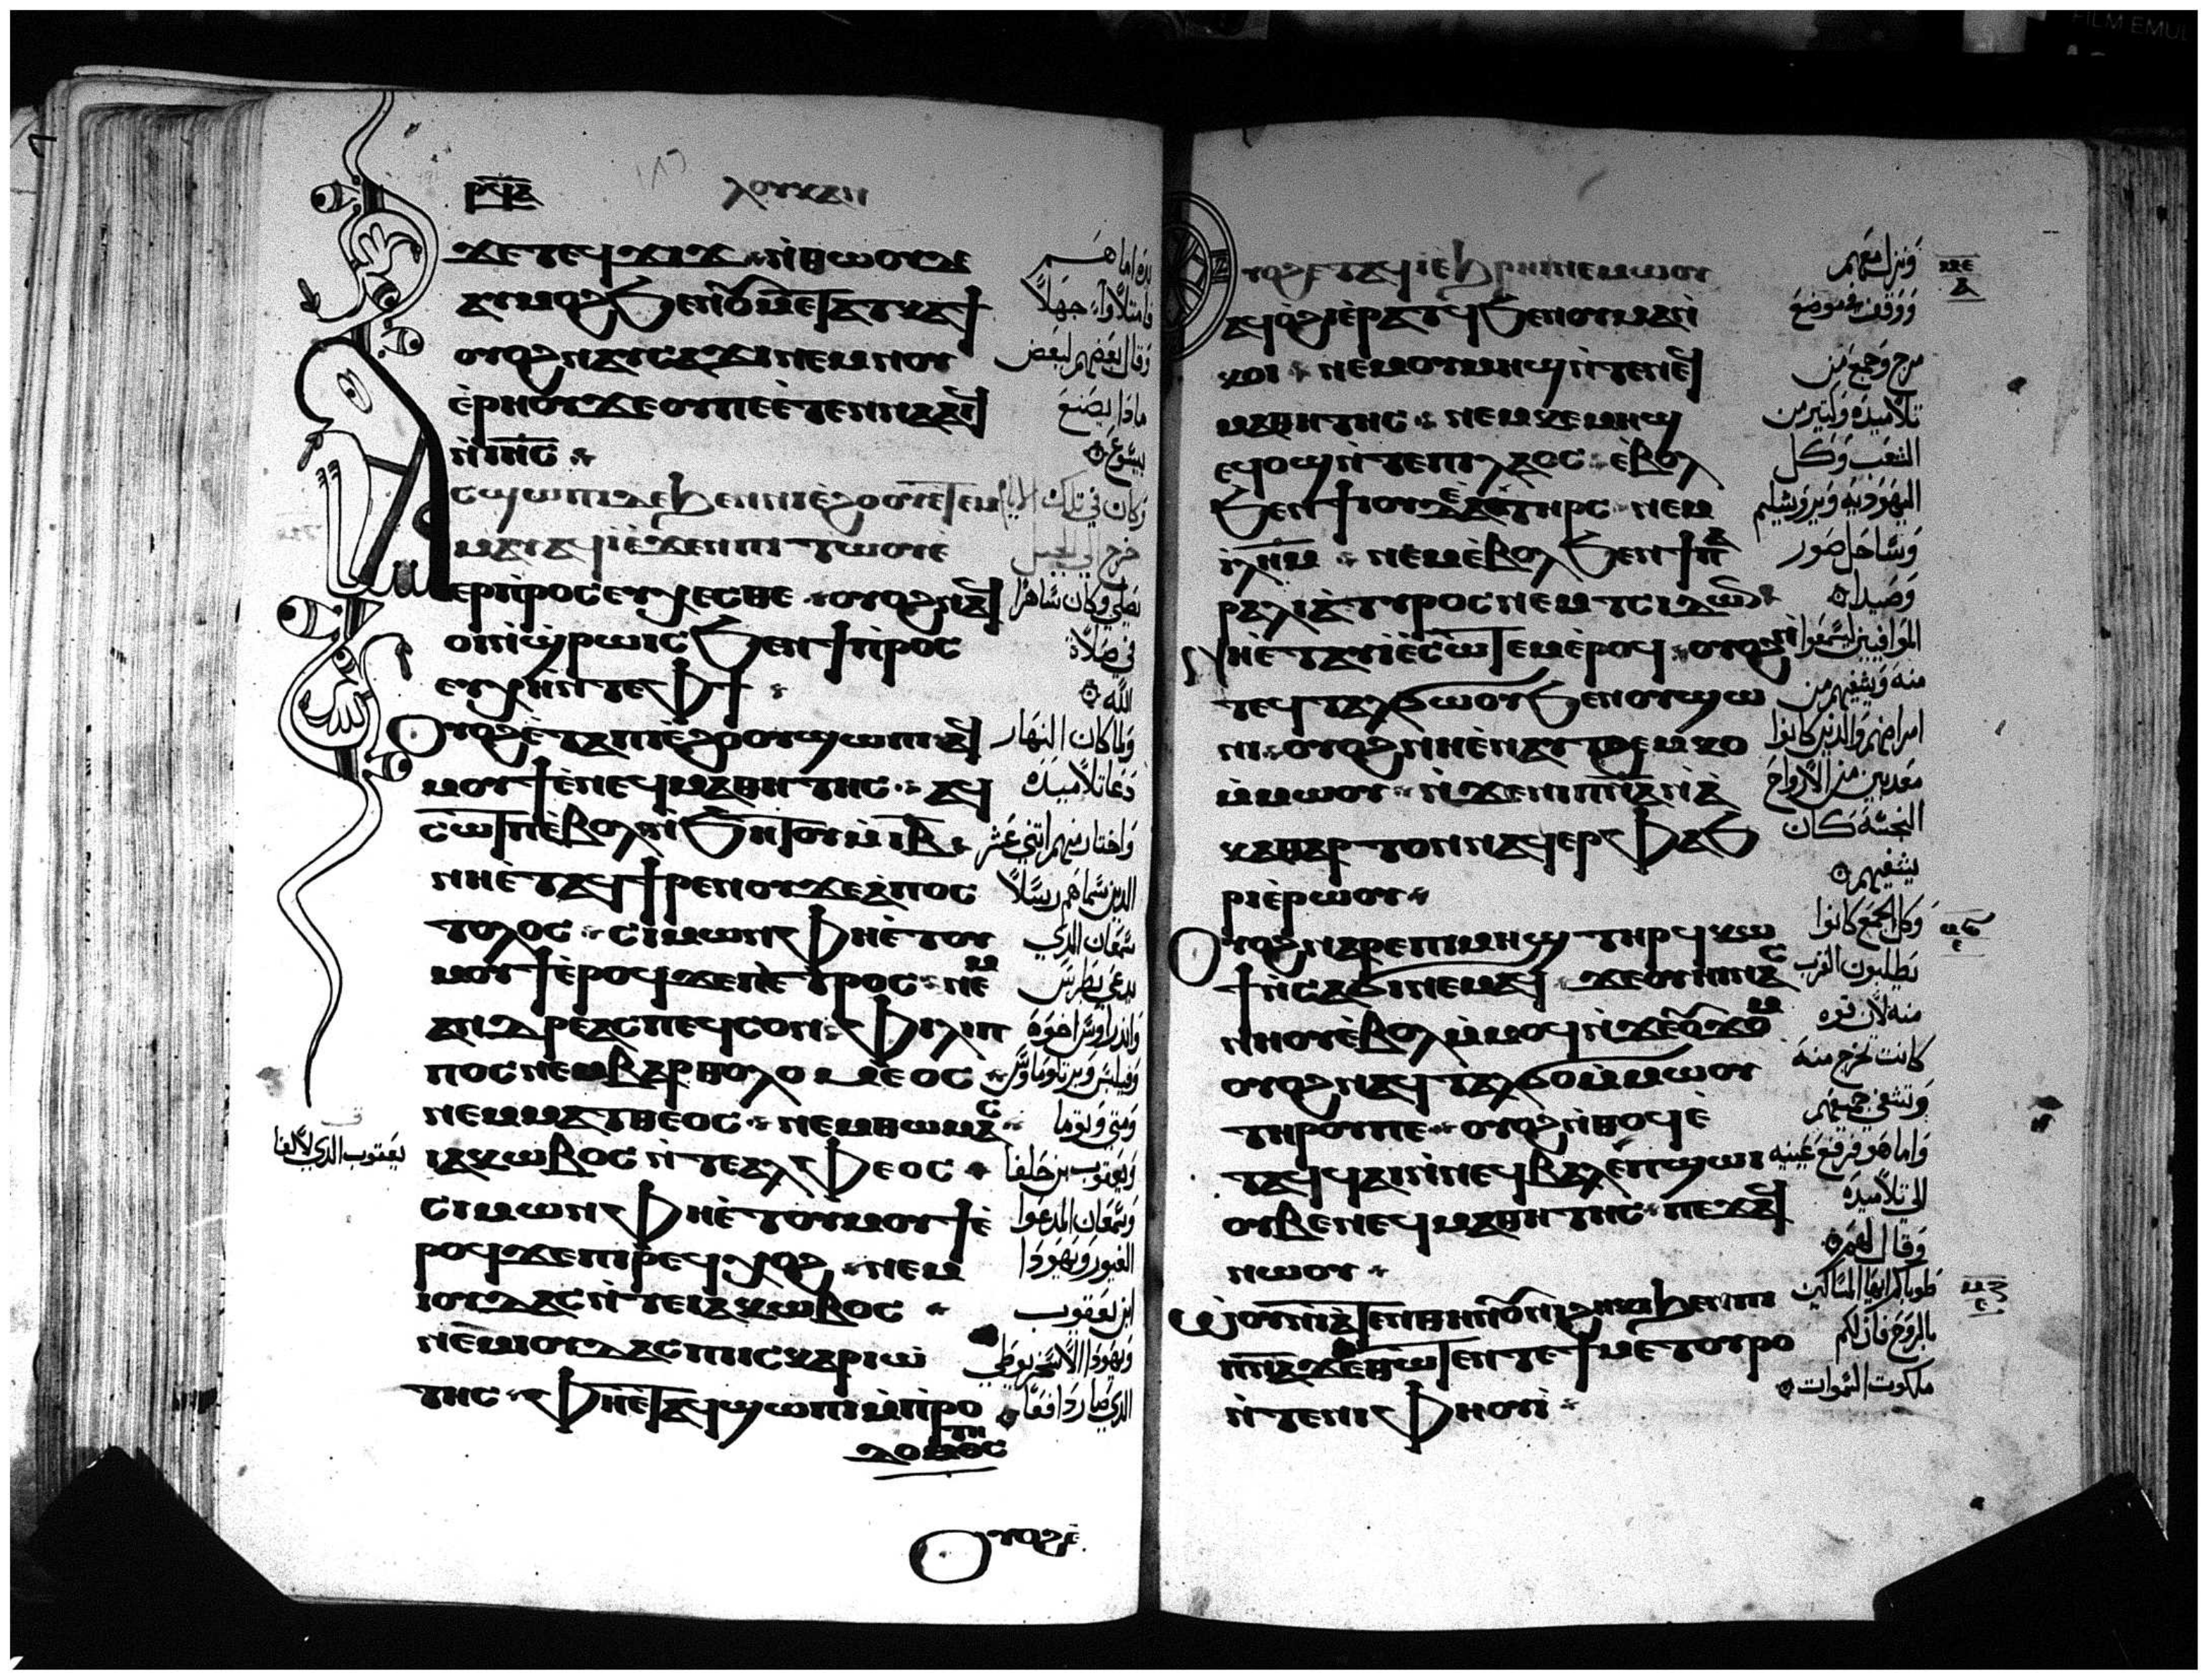 ⲗⲟⲩⲕⲁⲛ
ϫⲉ ⲧⲉϥϫⲓϫ ⲛ̀ⲑⲱⲟⲩ ⲇⲉ
ⲁⲩⲙⲟϩ ϧⲉⲛ ⲟⲩⲙⲉⲧⲁⲧⲕⲁϯ
ⲟⲩⲟϩ ⲛⲁⲩⲥⲁϫⲓ ⲛⲉⲙ ⲛⲟⲩ
ⲉ̀ⲣⲏⲟⲩ ϫⲉ ⲟⲩ ⲡⲉ ⲉ̀ⲧⲉⲛⲛⲁⲁⲓϥ
ⲛ̀ⲓⲏ̅ⲥ̅
ⲁⲥϣⲱⲡⲓ ⲇⲉ ϧⲉⲛ ⲛⲓⲉ̀ϩⲟⲟⲩ ⲉⲧⲉⲙ
ⲙⲁⲩ ⲁϥⲓ̀ ⲉ̀ϫⲉⲛ ⲡⲓⲧⲱⲟⲩ ⲉ̀
ⲉⲣⲡⲣⲟⲥⲉⲩⲭⲉⲥⲑⲉ ⲟⲩⲟϩ ⲛⲁϥ
ⲟⲓ ⲛ̀ϣⲣⲱⲓⲥ ϧⲉⲛ ϯⲡⲣⲟⲥ
ⲉⲩⲭⲏ ⲛ̀ⲧⲉ ⲫϯ
ⲟⲩⲟϩ ⲉ̀ⲧⲁ ⲡⲓⲉ̀ϩⲟⲟⲩ ϣⲱⲡⲓ ⲁϥ
ⲙⲟⲩϯ ⲉ̀ⲛⲉϥⲙⲁⲑⲏⲧⲏⲥ ⲁϥ
ⲥⲱⲧⲡ ⲉ̀ⲃⲟⲗ ⲛ̀ϧⲏⲧⲟⲩ ⲙ̀ⲓ̅ⲃ̅
ⲛⲏ ⲉ̀ⲧⲁϥϯⲣⲉⲛⲟⲩ ϫⲉ ⲁ̀ⲡⲟⲥ
ⲧⲟⲗⲟⲥ ⲥⲓⲙⲱⲛ ⲫⲏ ⲉ̀ⲧⲟⲩ
ⲙⲟⲩϯ ⲉ̀ⲣⲟϥ ϫⲉ ⲡⲉⲧⲣⲟⲥ ⲛⲉⲙ
ⲁⲛⲇⲣⲉⲁⲥ ⲡⲉϥⲥⲟⲛ ⲫⲓⲗⲓⲡ
ⲡⲟⲥ ⲛⲉⲙ ⲃⲁⲣⲑⲟⲗⲟⲙⲉⲟⲥ
ⲛⲉⲙ ⲙⲁⲧⲑⲉⲟⲥ ⲛⲉⲙ ⲑⲱⲙⲁⲥ
ⲓⲁⲕⲱⲃⲟⲥ ⲛ̀ⲧⲉ ⲁⲗⲫⲉⲟⲥ
ⲥⲓⲙⲱⲛ ⲫⲏ ⲉ̀ⲧⲟⲩⲙⲟⲩϯ ⲉ̀
ⲣⲟϥ ϫⲉ ⲡⲓⲣⲉϥⲭⲟϩ ⲛⲉⲙ
ⲓⲟⲩⲇⲁⲥ ⲛ̀ⲧⲉ ⲓⲁⲕⲱⲃⲟⲥ
ⲛⲉⲙ ⲓⲟⲩⲇⲁⲥ ⲡⲓⲥⲕⲁⲣⲓⲱ̀
ⲧⲏⲥ ⲫⲏ ⲉ̀ⲧⲁϥϣⲱⲡⲓ ⲙ̀ⲡⲣⲟ
ⲇⲟⲧⲏⲥ
ⲟⲩⲟϩ ⲉ̀
يده اما هم
فامتلاوا جهلا
وقال بعضهم لبعض
ماذا يصنع
بيسوع
وكان في تلك الايام
خرج الي الجبل
يصلي وكان ساهرا
في صلاة
الله
ولما كان النهار
دعا تلاميذه
واختار منهم اثني عشر
الذين سماهم رسلا
سمعان الذي
يدعي بطرس
واندراوس اخوه
وفيلبس وبرتلوماوس
ومتي وتوما
ويعقوب بن حلفا
وسمعان المدعوا
الغيور ويهودا
ابن يعقوب
ويهودا الاسخريوطي
الذي صار دافعا
يعقوب الذي لالفا
ⲟⲩⲟϩ ⲉ̀ⲧⲁϥⲓ̀ ⲉ̀ϧⲣⲏⲓ ⲛⲉⲙⲱⲟⲩ
ⲁϥⲟ̀ϩⲓ ⲉ̀ⲣⲁⲧϥ ϧⲉⲛ ⲟⲩⲙⲁ ⲛ̀
ⲕⲟⲓ ⲛⲉⲙ ⲟⲩⲙⲏϣ ⲛ̀ⲧⲉ ⲛⲉϥ
ⲙⲁⲑⲏⲧⲏⲥ ⲛⲉⲙ ⲕⲉⲙⲏϣ
ⲉϥⲟϣ ⲛ̀ⲧⲉ ⲡⲓⲗⲁⲟⲥ ⲉ̀ⲃⲟⲗ
ϧⲉⲛ ϯⲓⲟⲩⲇⲉⲁ ⲧⲏⲣⲥ ⲛⲉⲙ
ⲓ̅ⲗ̅ⲏ̅ⲙ̅ ⲛⲉⲙ ⲉ̀ⲃⲟⲗ ϧⲉⲛ ϯⲡⲁ
ⲣⲁⲗⲓⲁ ⲧⲩⲣⲟⲥ ⲛⲉⲙ ⲧⲥⲓⲇⲱⲛ
ⲛⲏ ⲉ̀ⲧⲁⲩⲓ̀ ⲉ̀ⲥⲱⲧⲉⲙ ⲉ̀ⲣⲟϥ ⲟⲩⲟϩ ⲛ̀
ⲧⲉϥⲧⲁⲗϭⲱⲟⲩ ϧⲉⲛ ⲟⲩϣⲱ
ⲛⲓ ⲟⲩⲟϩ ⲛⲏ ⲉ̀ⲛⲁⲩⲧϩⲉⲙⲕⲟ
ⲙ̀ⲙⲱⲟⲩ ⲛ̀ϫⲉ ⲛⲓⲡ̅ⲛ̅ⲁ̅ ⲛ̀ⲁ̀
ⲕⲁⲑⲁⲣⲧⲟⲛ ⲛⲁϥⲉⲣⲫⲁϧ
ⲣⲓ ⲉ̀ⲣⲱⲟⲩ
ⲟⲩⲟϩ ⲛⲁⲣⲉ ⲡⲓⲙⲏϣ ⲧⲏⲣϥ ⲕⲱ
ϯ ⲛ̀ⲥⲁ ϭⲓ ⲛⲉⲙⲁϥ ϫⲉ ⲟⲩⲏⲓ ⲛⲁⲥ
ⲛⲏⲟⲩ ⲉ̀ⲃⲟⲗ ⲙ̀ⲙⲟϥ ⲛ̀ϫⲉ ⲟⲩϫⲟⲙ
ⲟⲩⲟϩ ⲛⲁϥⲧⲁⲗϭⲟ ⲙ̀ⲙⲱⲟⲩ
ⲧⲏⲣⲟⲩ ⲡⲉ ⲟⲩⲟϩ ⲛ̀ⲑⲟϥ ⲉ̀
ⲧⲁϥϥⲁⲓ ⲛ̀ⲛⲉϥⲃⲁⲗ ⲉ̀ⲡϣⲱⲓ
ⲟⲩⲃⲉ ⲛⲉϥⲙⲁⲑⲏⲧⲏⲥ ⲡⲉϫⲁϥ
ⲛⲱⲟⲩ
ⲱⲟⲩⲛⲓⲁⲧⲉⲛ ⲑⲏⲛⲟⲩ ⲛⲓϩⲏⲕⲓ ϧⲉⲛ ⲡⲓ
ⲡ̅ⲛ̅ⲁ̅ ϫⲉ ⲑⲱⲧⲉⲛ ⲧⲉ ϯⲙⲉⲧⲟⲩⲣⲟ
ⲛ̀ⲧⲉ ⲛⲓⲫⲏⲟⲩⲓ̀
ونزل معهم
ووقف في موضع
مرج وجمع من
تلاميذه وكثير من
الشعب وكل
اليهوديه ويروشليم
وساحل صور
وصيدا
الموافيين ليسمعوا
منه ويشفيهم من
امراضهم والذين كانوا
معذبين من الارواح
النجسة كان
يشفيهم
وكل الجمع كانوا
يطلبون القرب
منه لان قوه
كانت تخرج منه
وتشفي جميعهم
واما هو فرفع عينيه
الي تلاميذه
وقال لهم
طوباكم ايها المساكين
بالروح فان لكم
ملكوت السموات